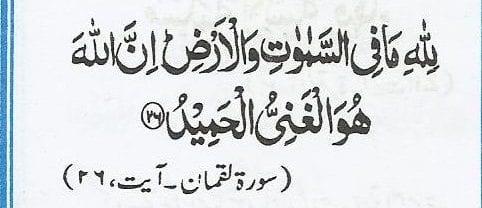 لِلّٰهِ مَا فِی السَّمٰوٰتِ وَالْاَرْضِ ؕ اِنَّ اللّٰهَ
هُوَ الْغَنِیُّ الْحَمِیْدُ ﴿۲۶﴾
(سورۃ لقمان۔ آیت، ۲۶)